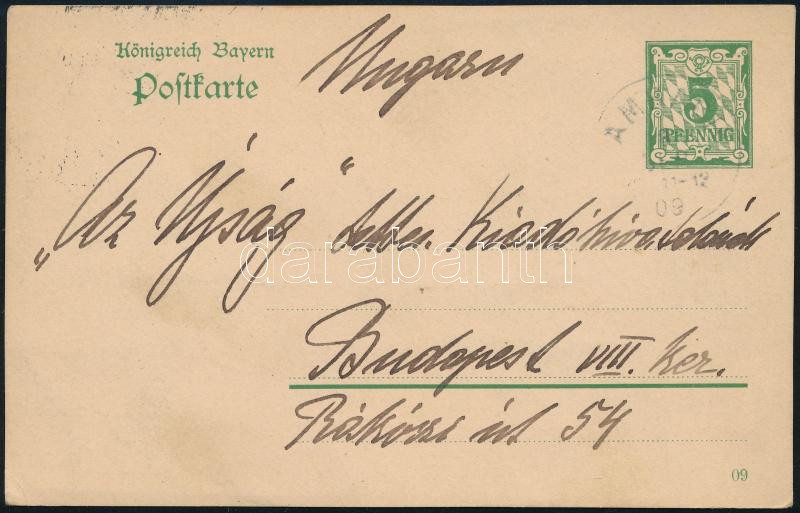 Königreich Bayern
Postkarte
Ungarn
5
PFENNIG
AM
11-12
09
„Az Ujság“ Kiadóhivatalának
darabanth
Budapest VIII. ker.
Rákóczi út 54
09